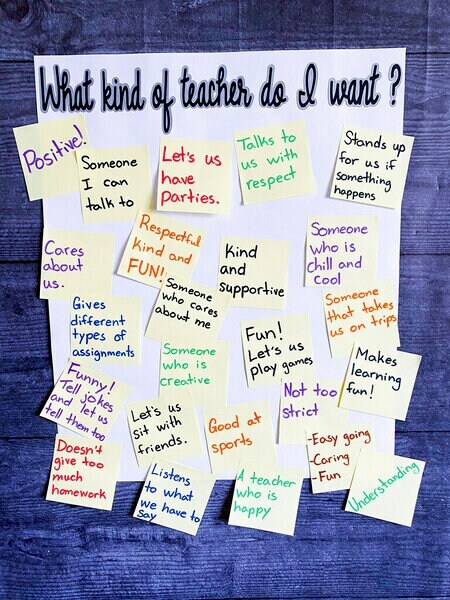 What kind of teacher do I want?
Positive!
Someone
I can
talk to
Let's us
have
Parties.
Talks to
us with
respect
Stands up
for us if
something
happens
Cares
about
us.
Respectful
Kind and
FUN!!
Kind
and
supportive
Someone
who is
chill and
cool
Gives
different
types of
assignments
Someone
who cares
about me
Someone
that takes
us on trips
Someone
who is
creative
Fun!
Let's us
play games
Makes
learning
fun!
Funny!
Tell jokes
and let us
tell them too
Let's us
sit with
friends.
Good at
sports
Not too
strict
-Easy going
-Caring
-Fun
Doesn't
give too
much
homework
Listens
to what
we have to
say
A teacher
who is
happy
Understanding